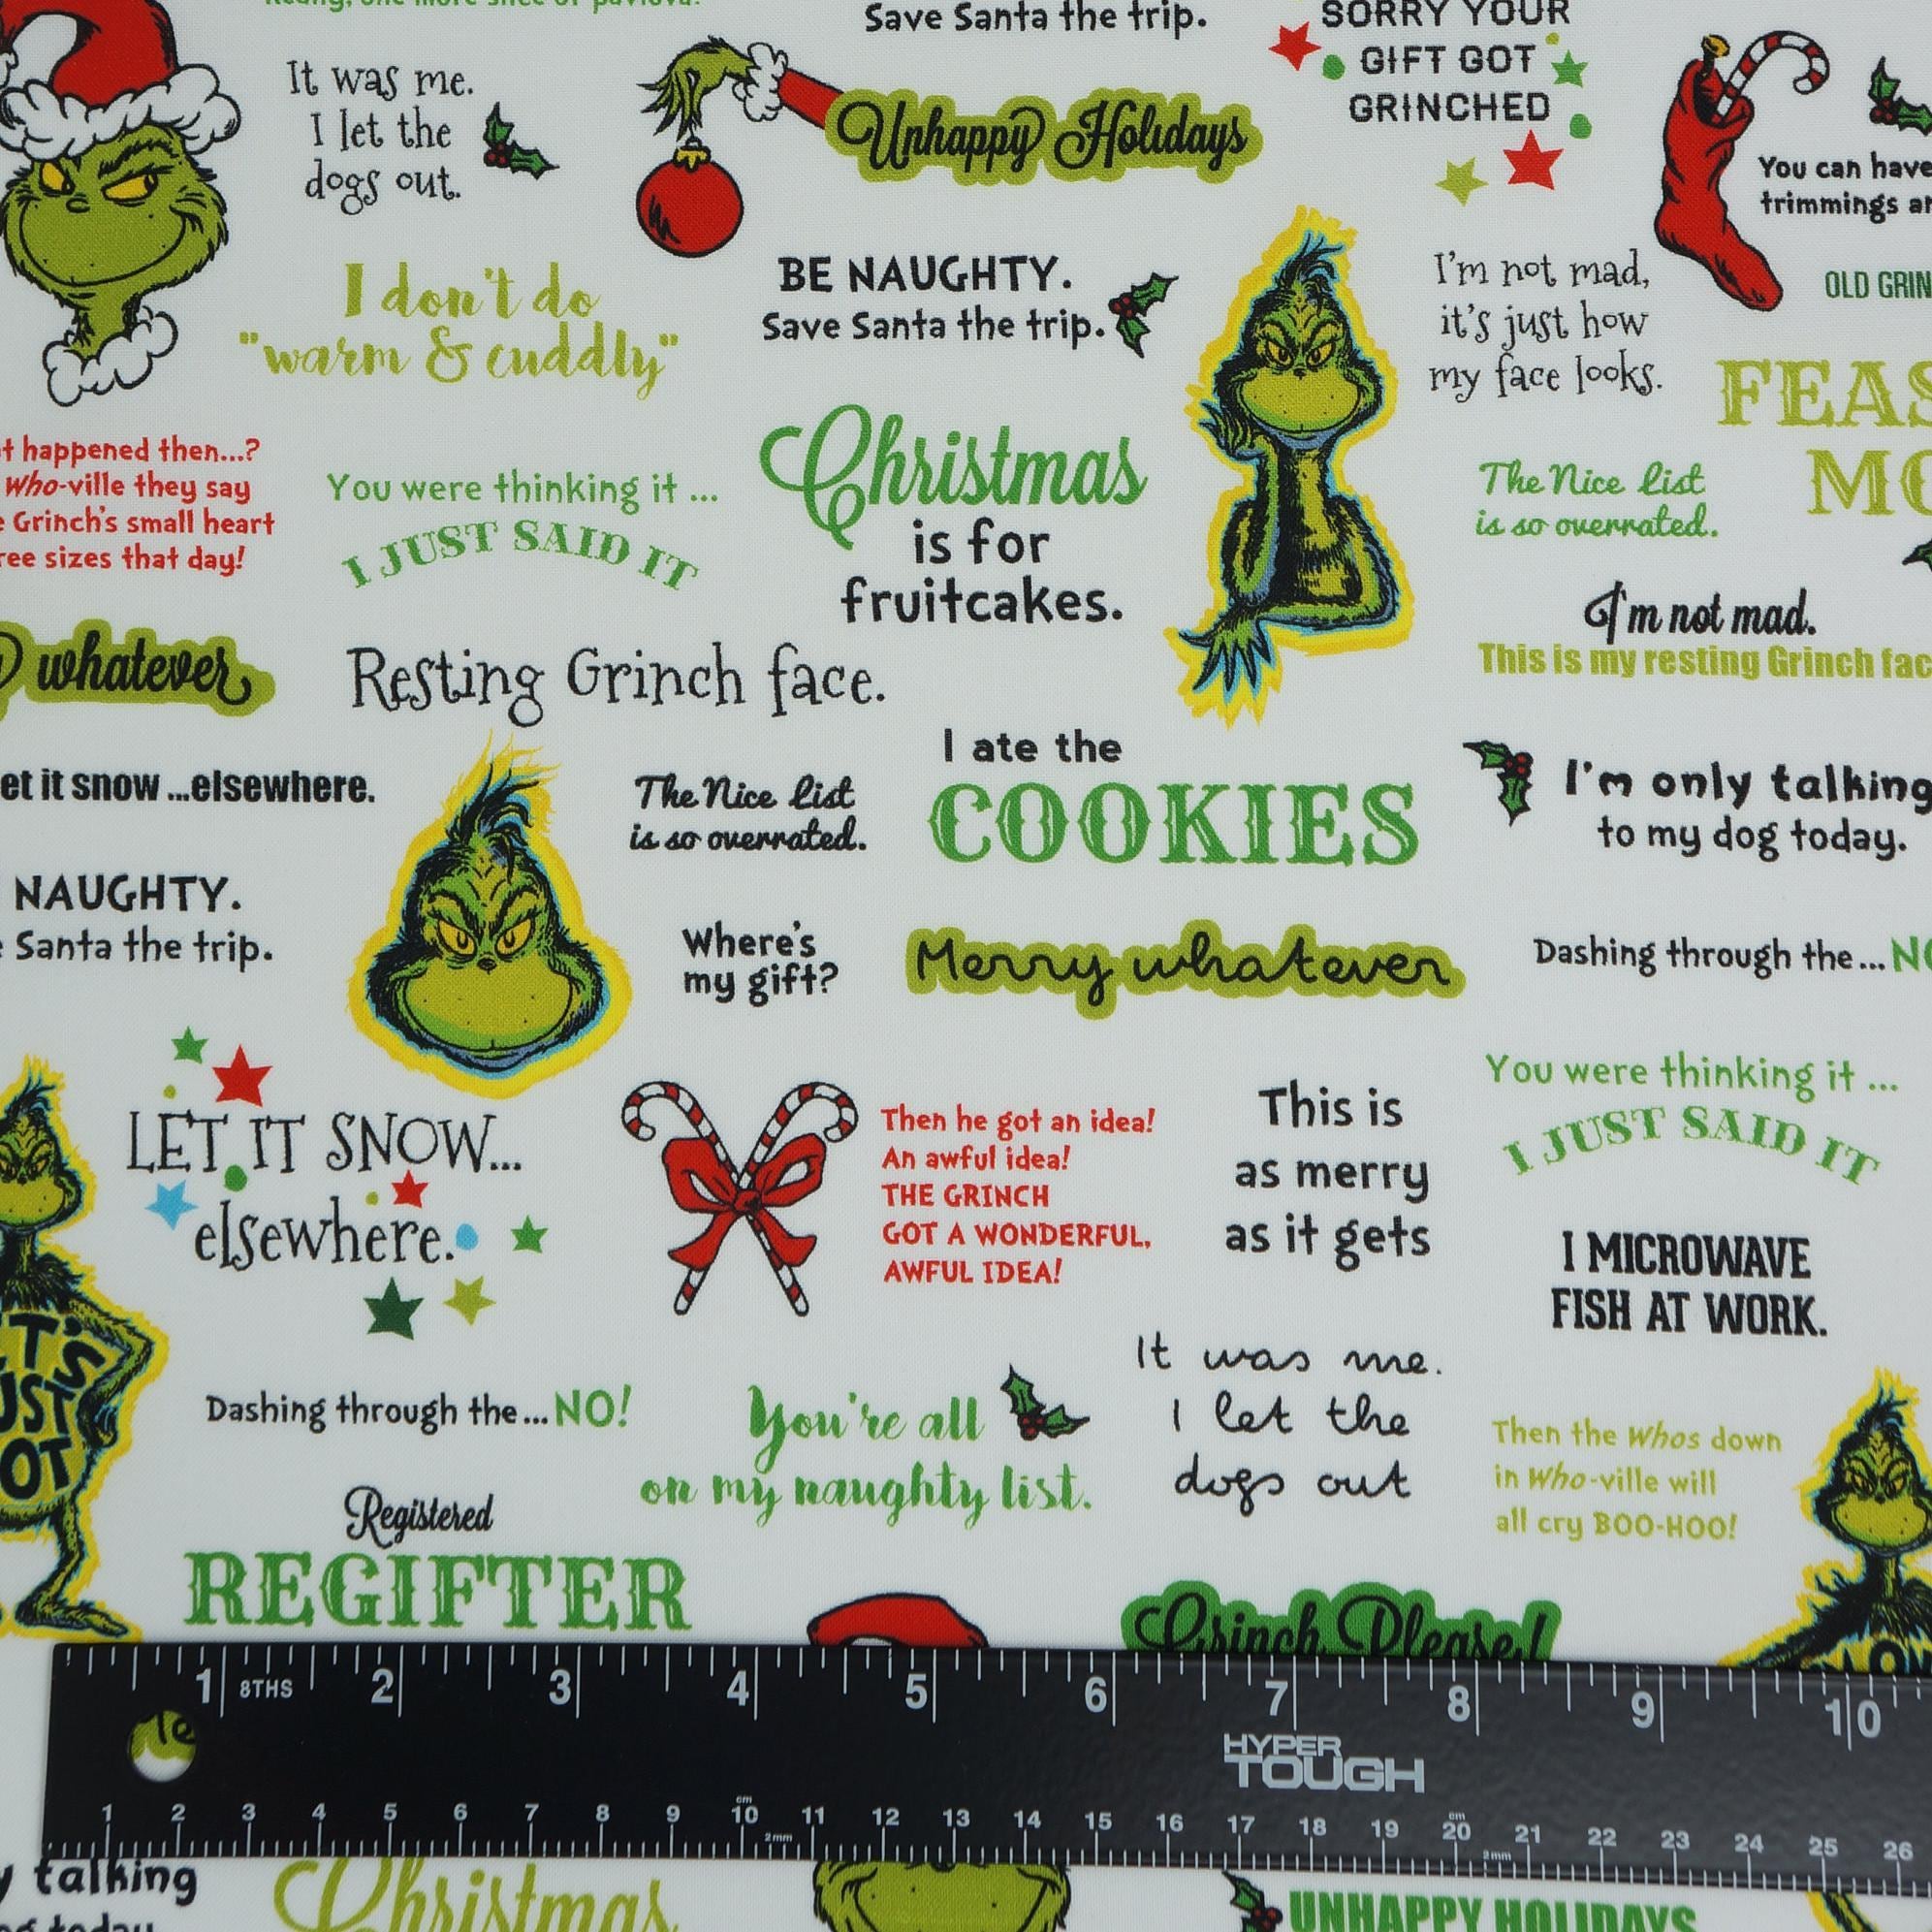 one more slice of pavlova.
Save Santa the trip.
SORRY YOUR
GIFT GOT
GRINCHED
It was me.
I let the
dogs out.
Unhappy Holidays
You can have
trimmings
OLD
I don't do
"warm & cuddly"
BE NAUGHTY.
Save Santa the trip.
I'm not mad,
it's just how
my face looks.
happened then...?
Who-ville they say
Grinch's small heart
sizes that day!
You were thinking it ...
I JUST SAID IT
Christmas
is for
fruitcakes.
The Nice List
is so overrated.
I'm not mad.
This is my resting Grinch
whatever
Resting Grinch face.
it snow ...elsewhere.
The Nice List
is so overrated.
I ate the
COOKIES
I'm only talking
to my dog today.
NAUGHTY.
Santa the trip.
Where's
my gift?
Merry whatever
Dashing through the...
LET IT SNOW...
elsewhere.
Then he got an idea!
An awful idea!
THE GRINCH
GOT A WONDERFUL,
AWFUL IDEA!
This is
as merry
as it gets
You were thinking it ...
I JUST SAID IT
I MICROWAVE
FISH AT WORK.
Dashing through the... NO!
You're all
on my naughty list.
It was me.
I let the
dogs out
Then the Whos down
in Who-ville will
all cry BOO-HOO!
Registered
REGIFTER
Grinch Please!
1 8THS 2 3 4 5 6 7 8 9 10
HYPER
TOUGH
1 2 3 4 5 6 7 8 9 10 11 12 13 14 15 16 17 18 19 20 21 22 23 24 25 26
cm cm
2mm 2mm
talking
today.
Christmas
UNHAPPY HOLIDAYS